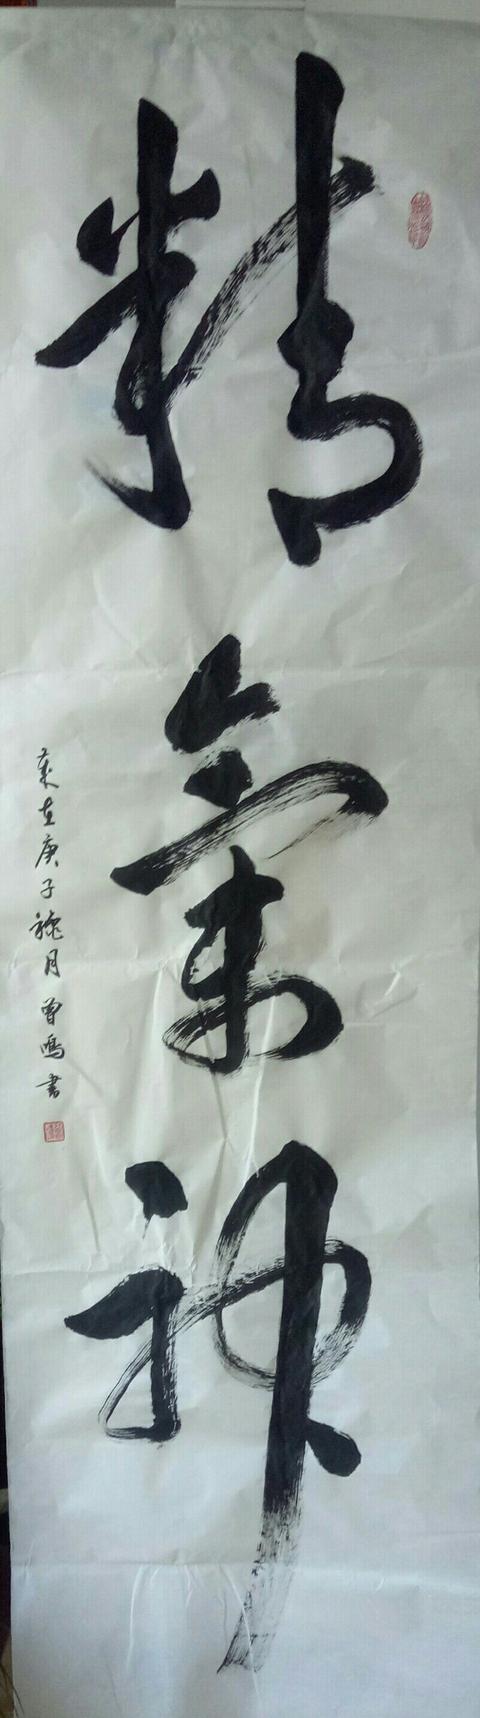 精氣神
歲在庚子秋月曾鳴書